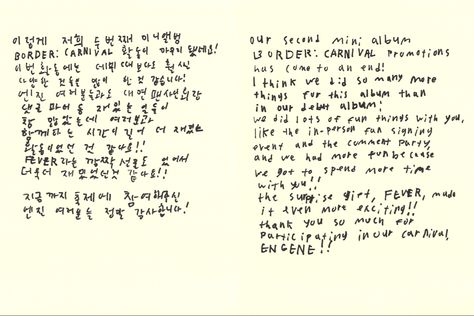 이렇게 저희 두번째 미니앨범
BORDER: CARNIVAL 활동이 마무리 됐네요!
이번 활동에는 데뷔 때보다 훨씬
다양한 것들을 많이 한 것 같습니다!
엔진 여러분들과도 대면 팬사인회랑
댓글 파티 등 재밌는 일들이
참 많았는데 여러분과
함께하는 시간이 길어 더 재밌는
활동이었던 것 같아요!!
FEVER라는 깜짝 선물도 있어서
더욱더 재밌었던 것 같아요!!
지금까지 축제에 참여해주신
엔진 여러분들 정말 감사합니다!
our second mini album
BORDER: CARNIVAL promotions
has come to an end!
I think we did so many more
things for this album than
in our debut album!
we did lots of fun things with you,
like the in-person fan signing
event and the comment party,
and we had more fun because
we got to spend more time
with you!!
the surprise gift, FEVER, made
it even more exciting!!
thank you so much for
participating in our carnival,
ENGENE!!